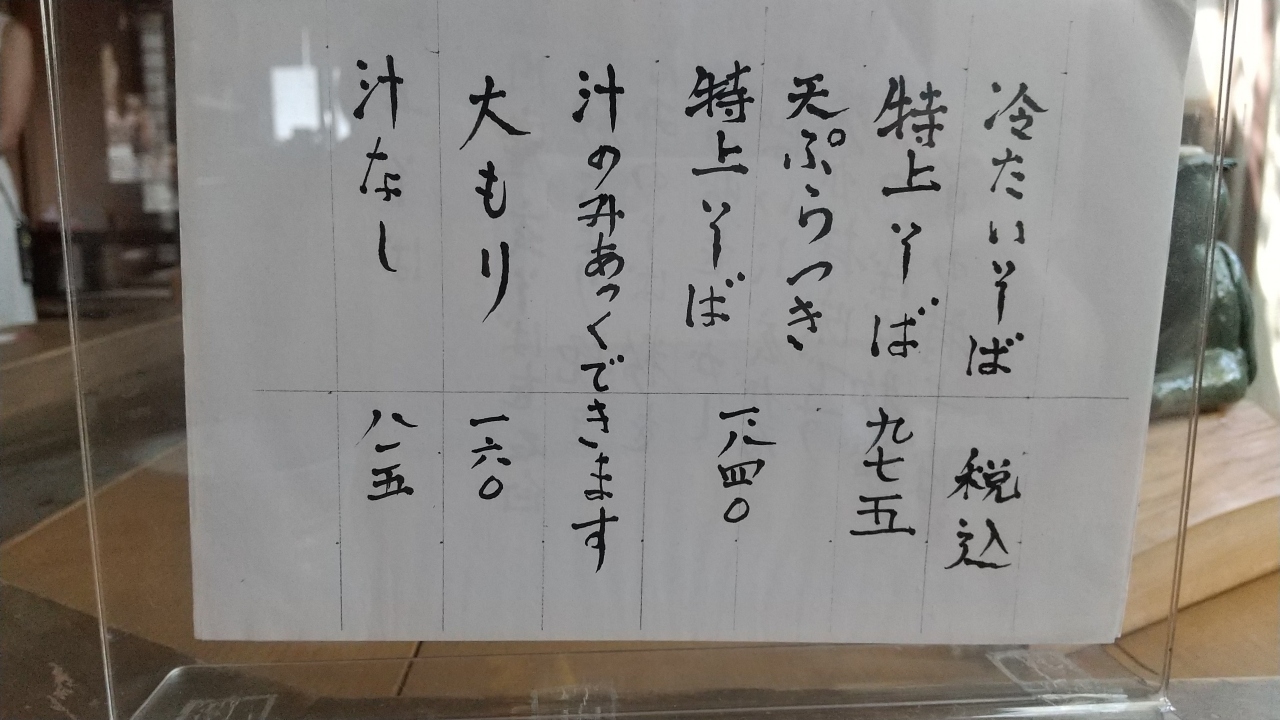 冷たいそば 税込
特上そば 九七五
天ぷらつき
特上そば 一、八四〇
汁のみあつくできます
大もり 一六〇
汁なし 八一五